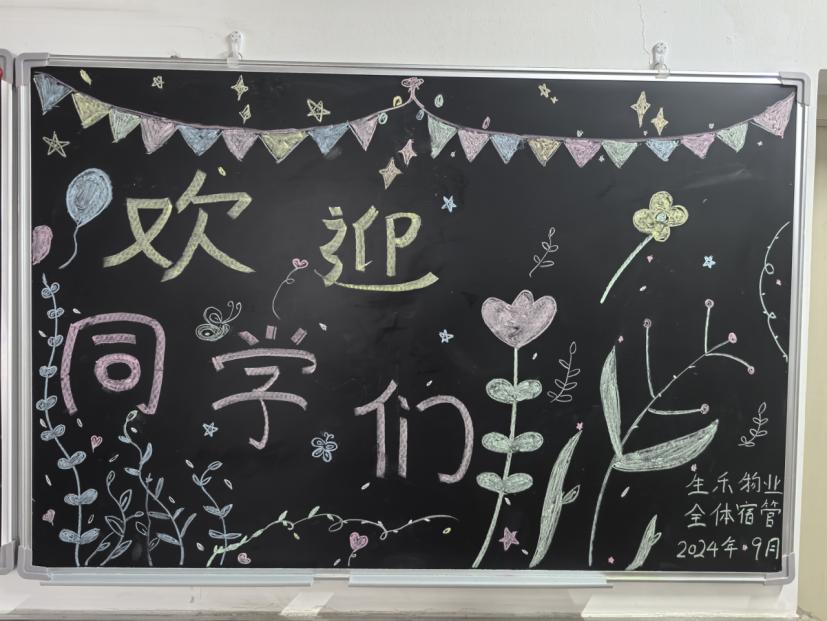 欢迎
同学们
生乐物业
全体宿管
2024年·9月